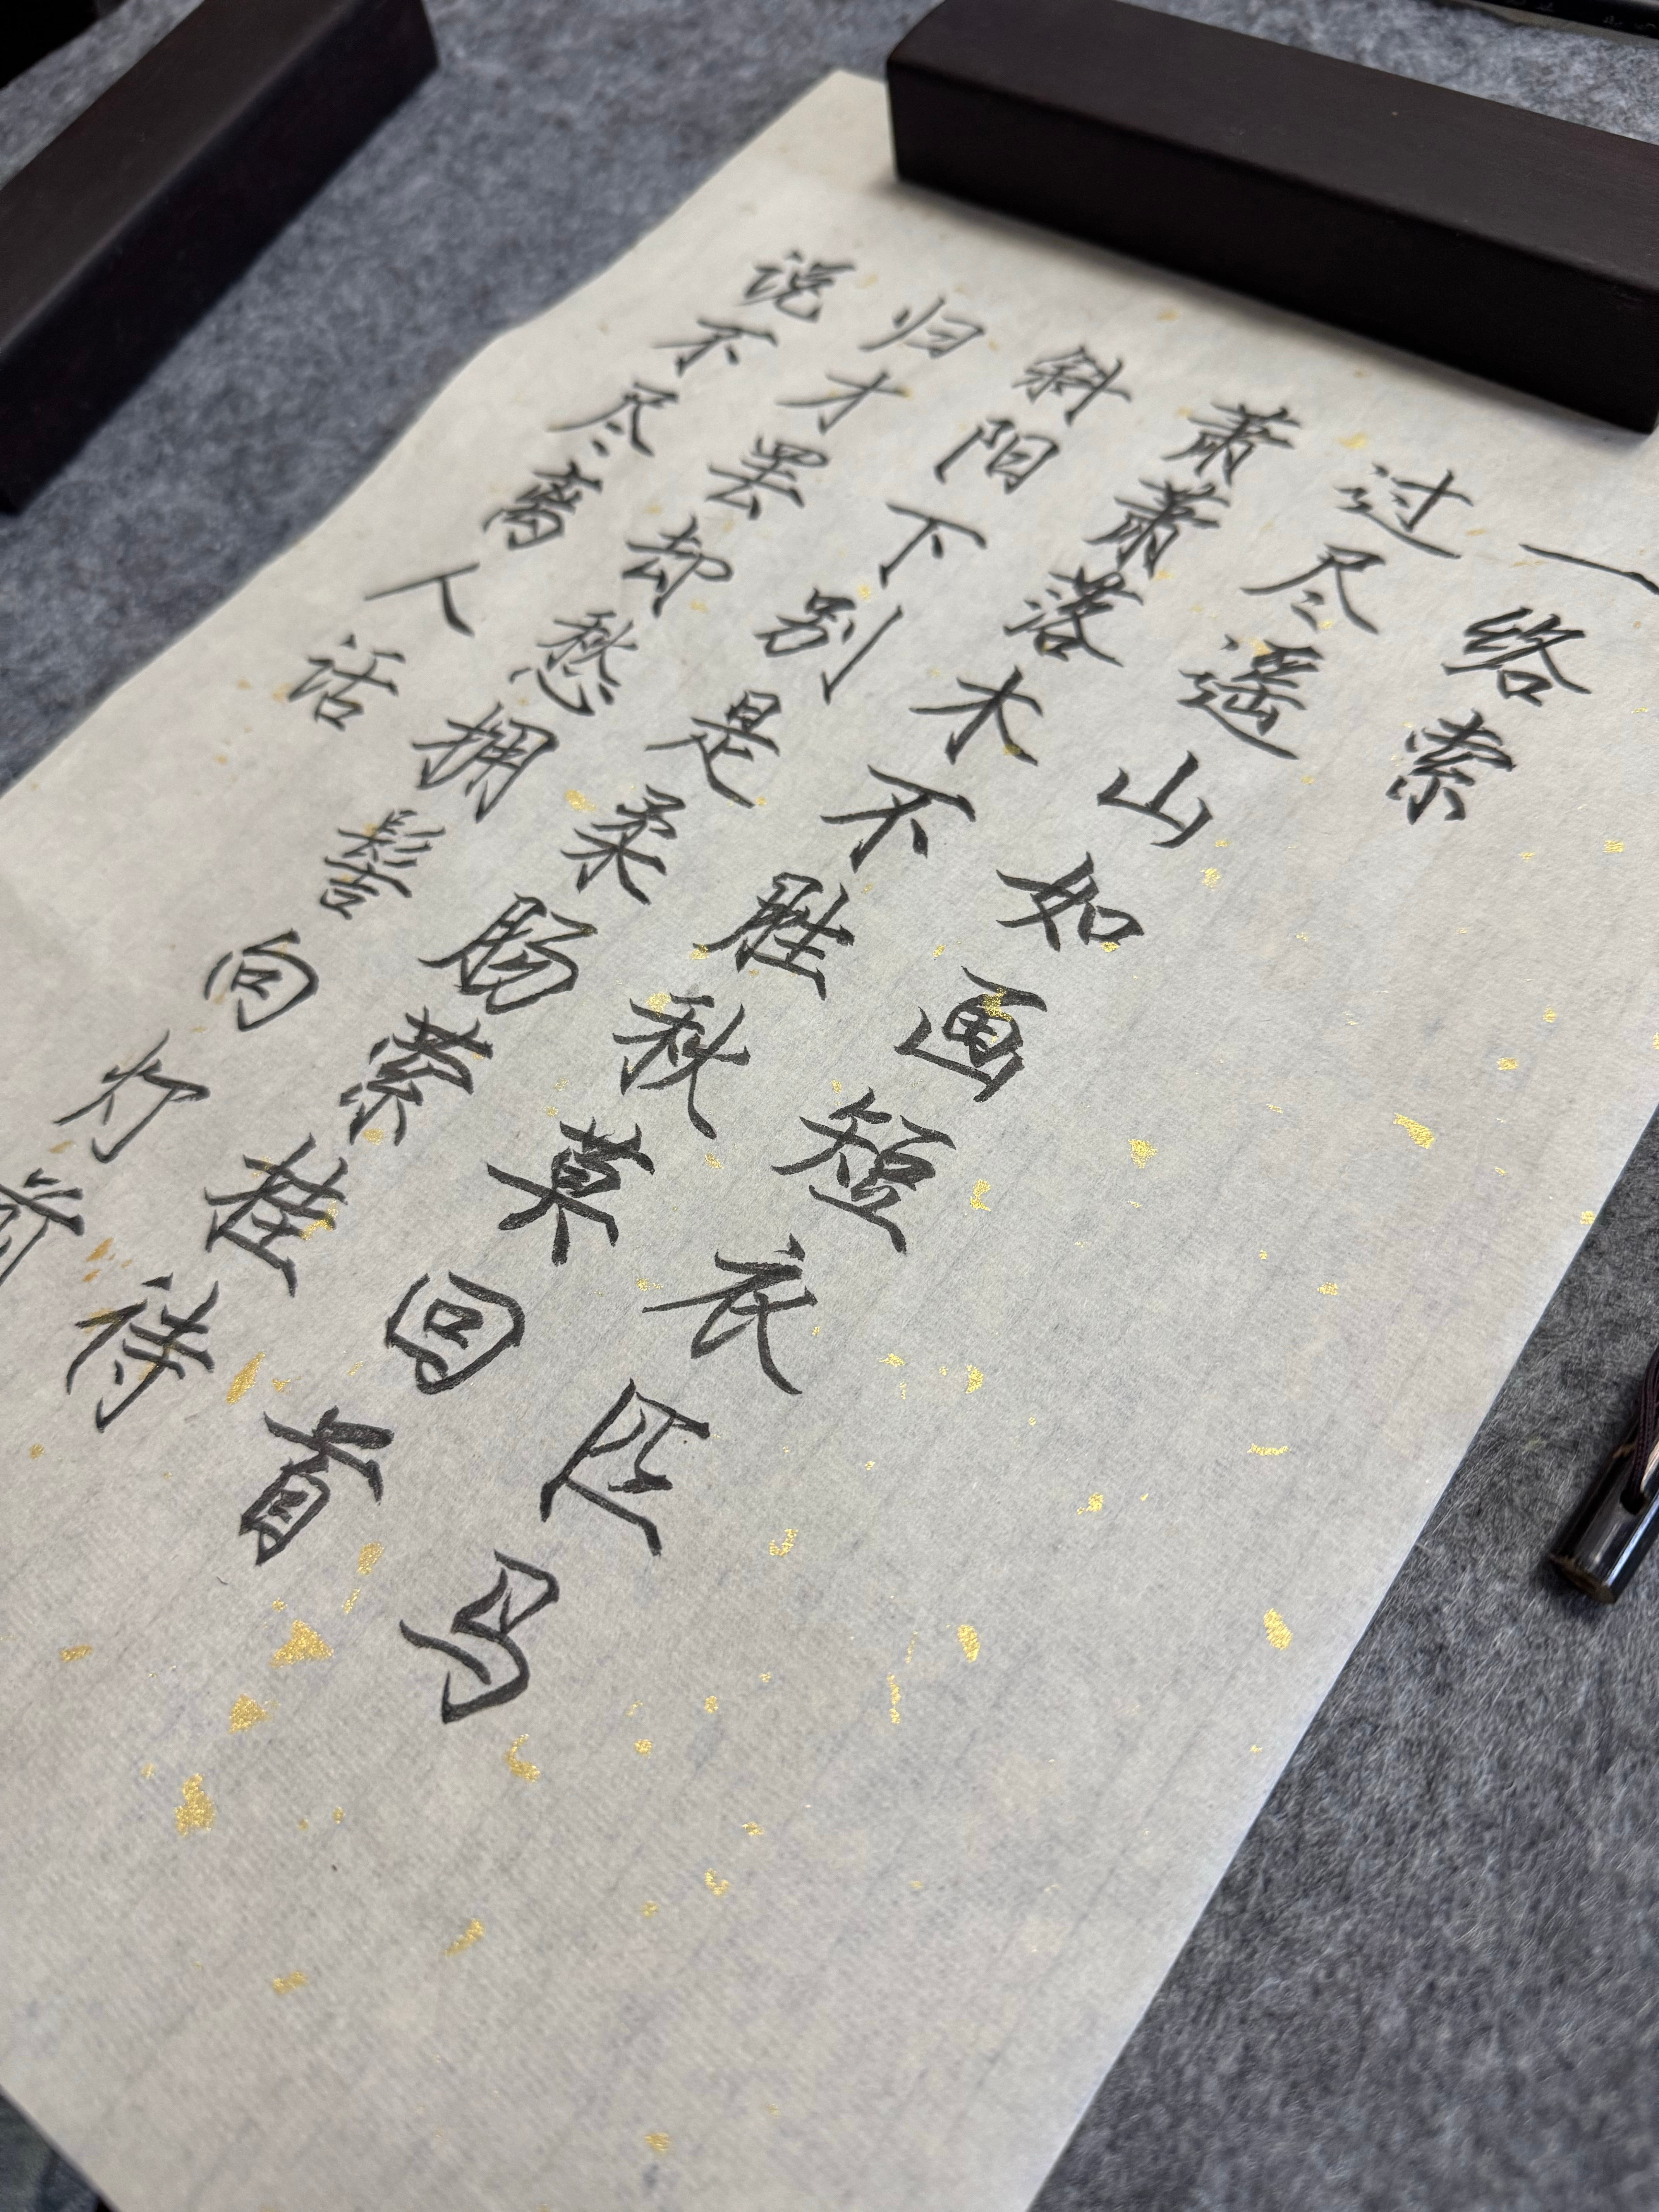 一络索
过尽遥山如画短衣匹马
萧萧落木不胜秋莫回首
斜阳下别是柔肠萦挂待
归才罢却愁拥髻向灯前
说不尽离人话